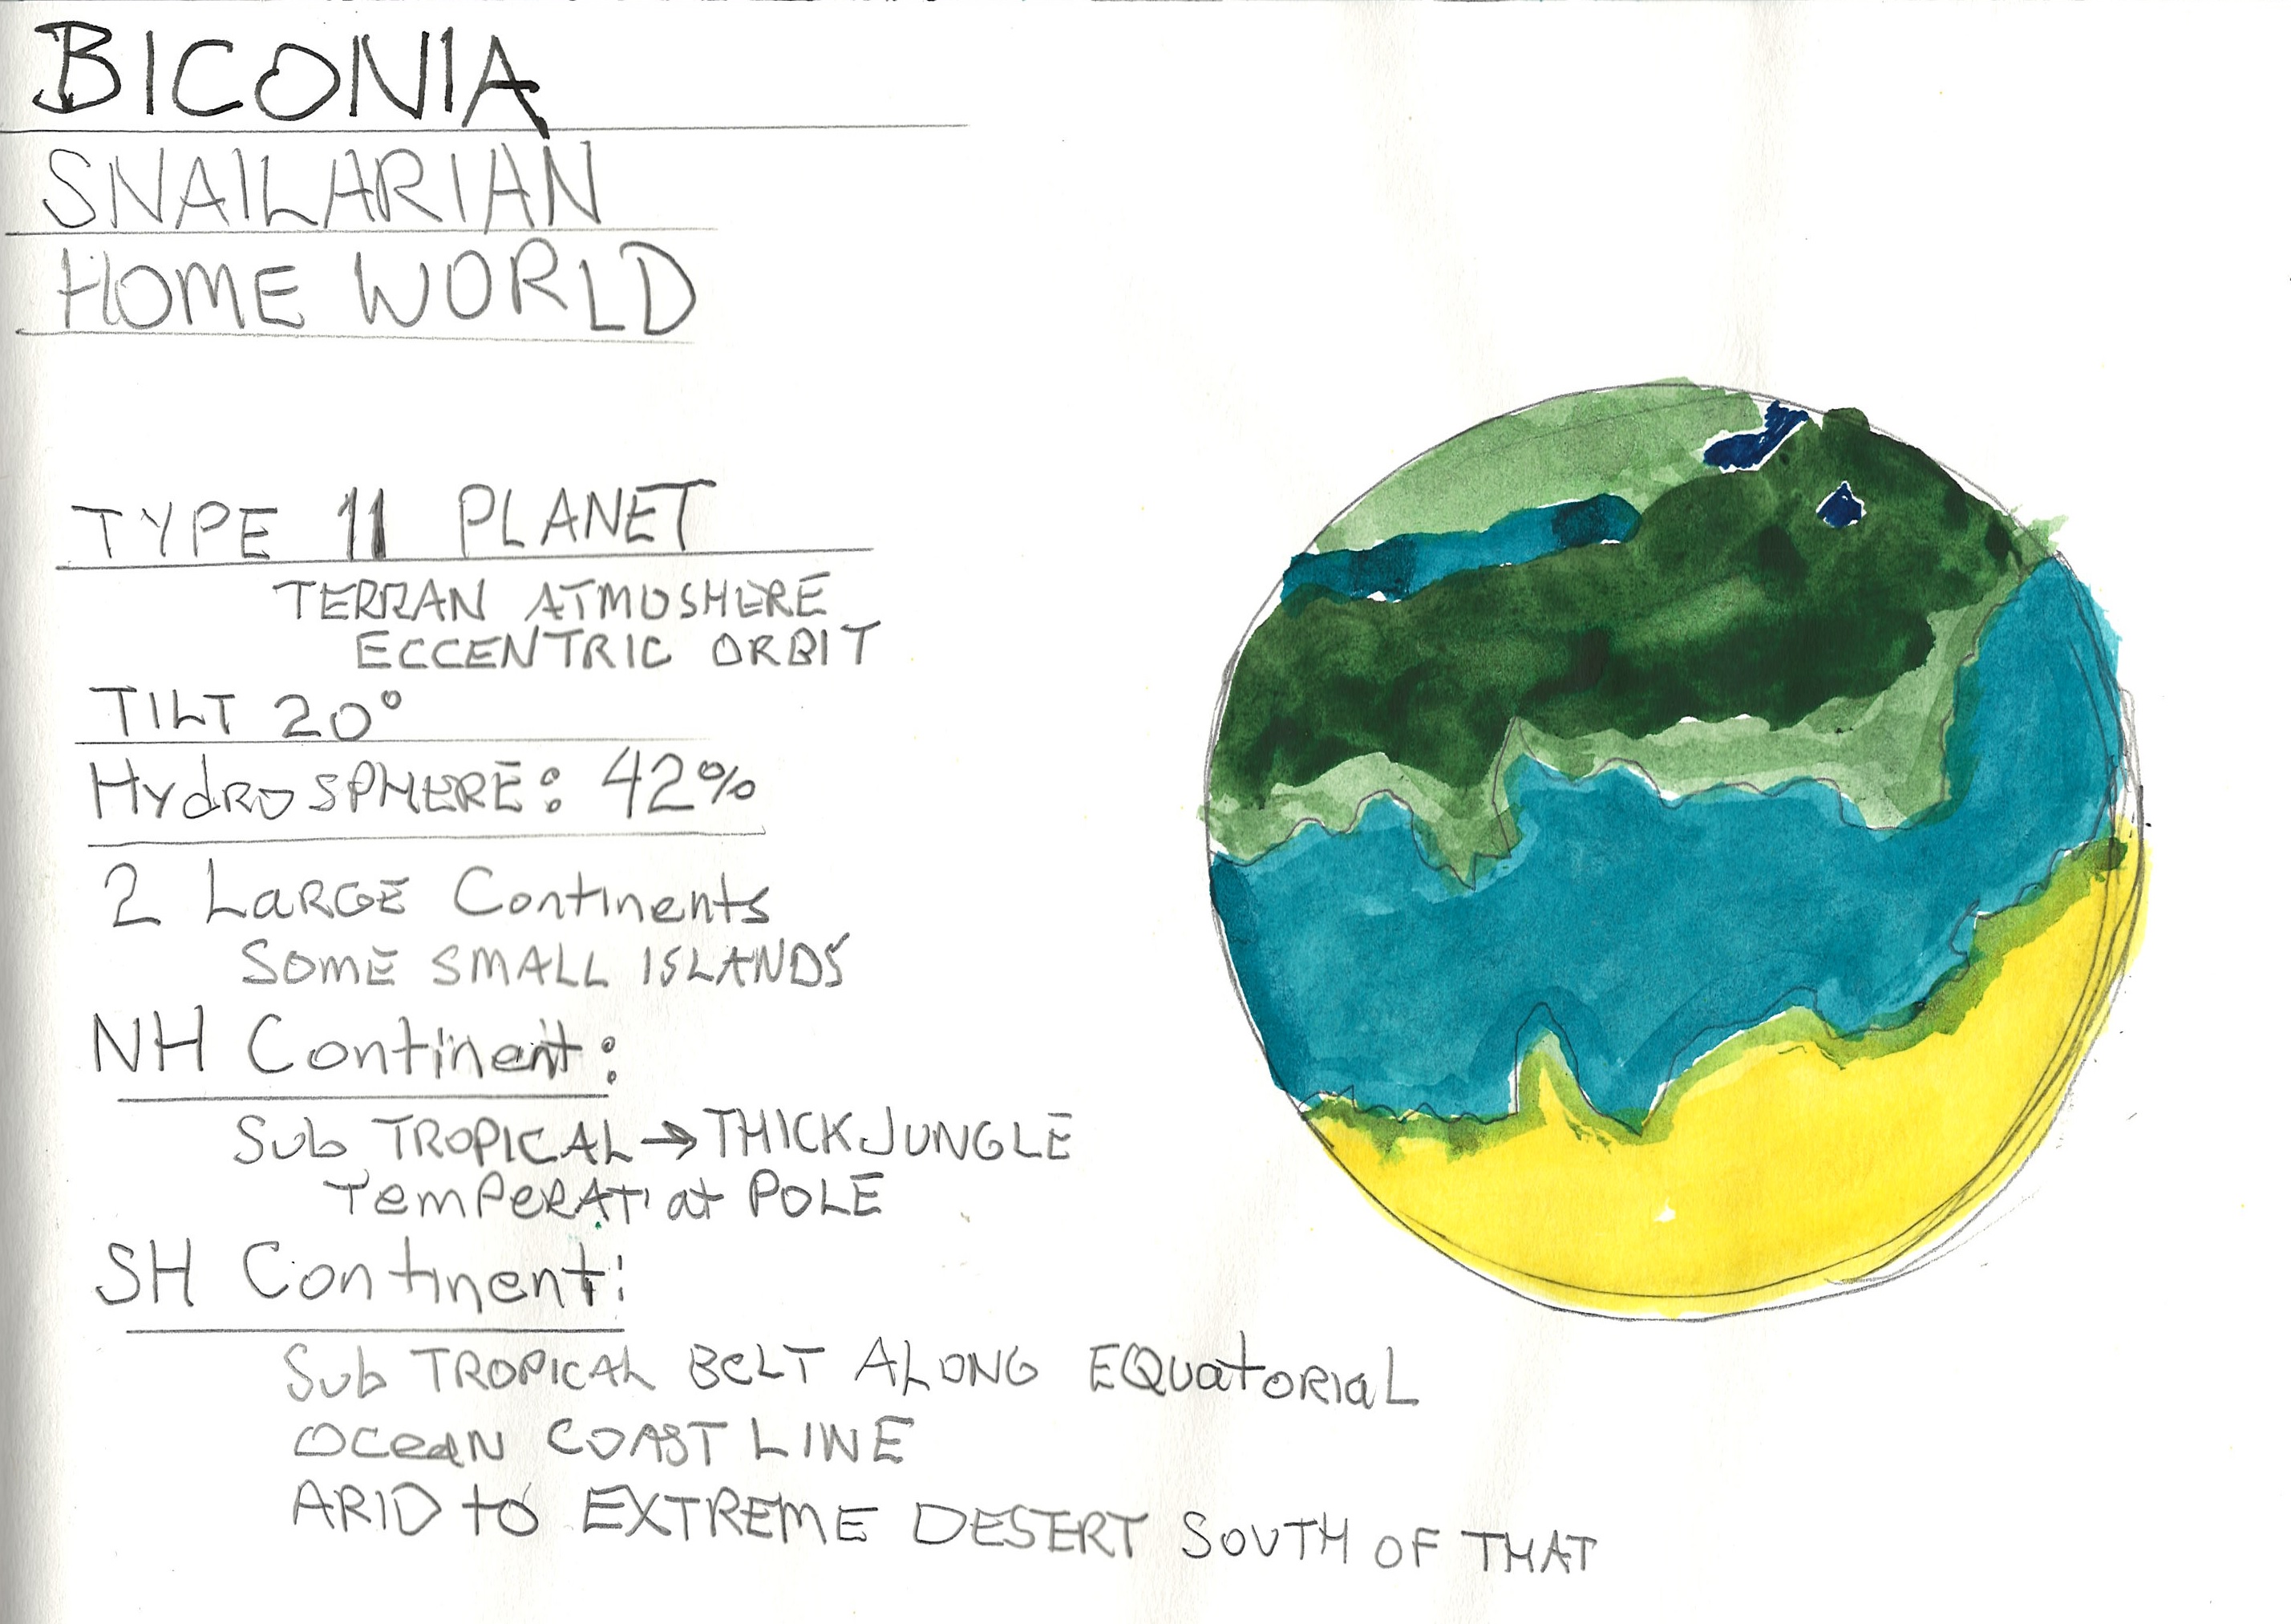 BICONIA
SNAILARIAN
HOME WORLD
TYPE 11 PLANET
TERRAN ATMOSHERE
ECCENTRIC ORBIT
TILT 20°
HYdROSPHERE: 42%
2 LaRGE Continents
SOME SMALL ISLANDS
NH Continent:
Sub TROPICAL → THICK JUNGLE
TemPeRAT' at POLE
SH Continent:
Sub TROPICAL BeLT ALONG EQUatORIaL
OCeaN COAST LINE
ARID to EXTREME DESERT SOUTH OF THAT